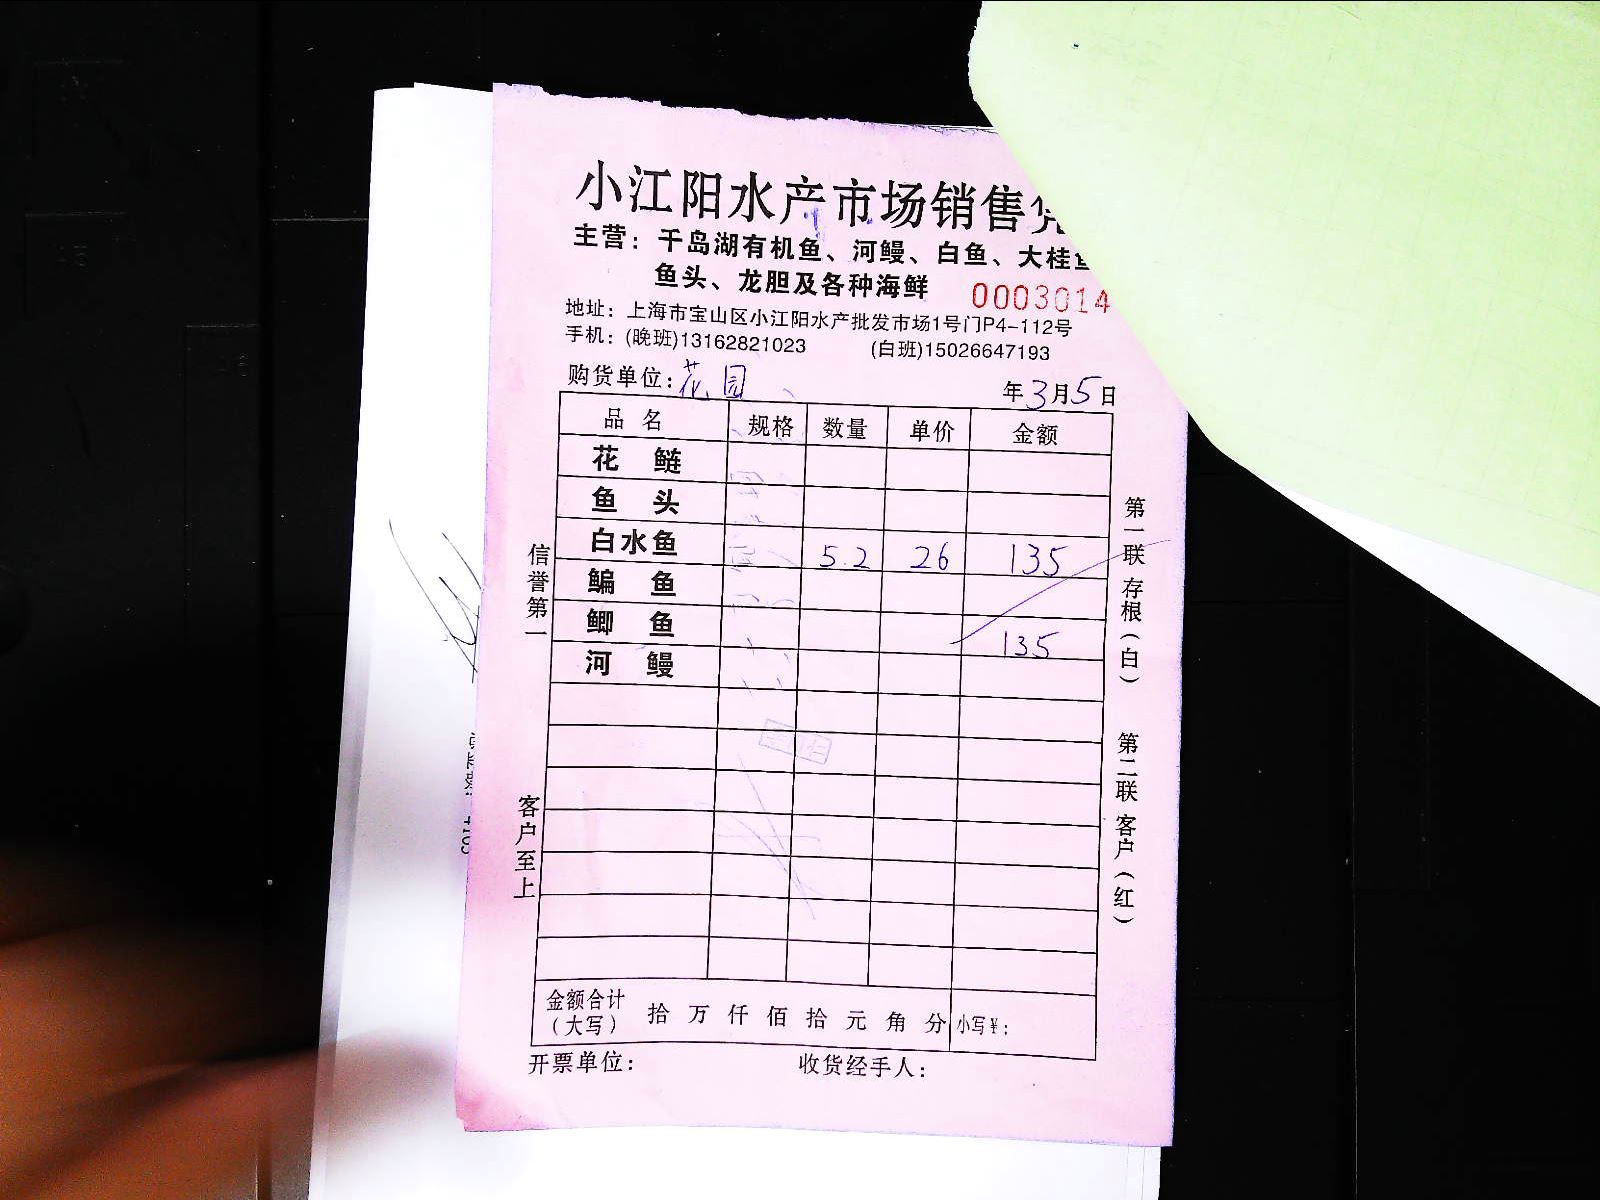 小江阳水产市场销售
主营：千岛湖有机鱼、河鳗、白鱼、大桂
鱼头、龙胆及各种海鲜
0003014
地址：上海市宝山区小江阳水产批发市场1号门P4-112号
手机：(晚班)13162821023 (白班)15026647193
购货单位：花园 年3月5日
品名 规格 数量 单价 金额
花鲢
鱼头
白水鱼 5.2 26 135
鳊鱼
鲫鱼 135
河鳗
金额合计（大写） 拾万仟佰拾元角分 小写￥：
开票单位： 收货经手人：
信誉第一
客户至上
第一联 存根（白）
第二联 客户（红）